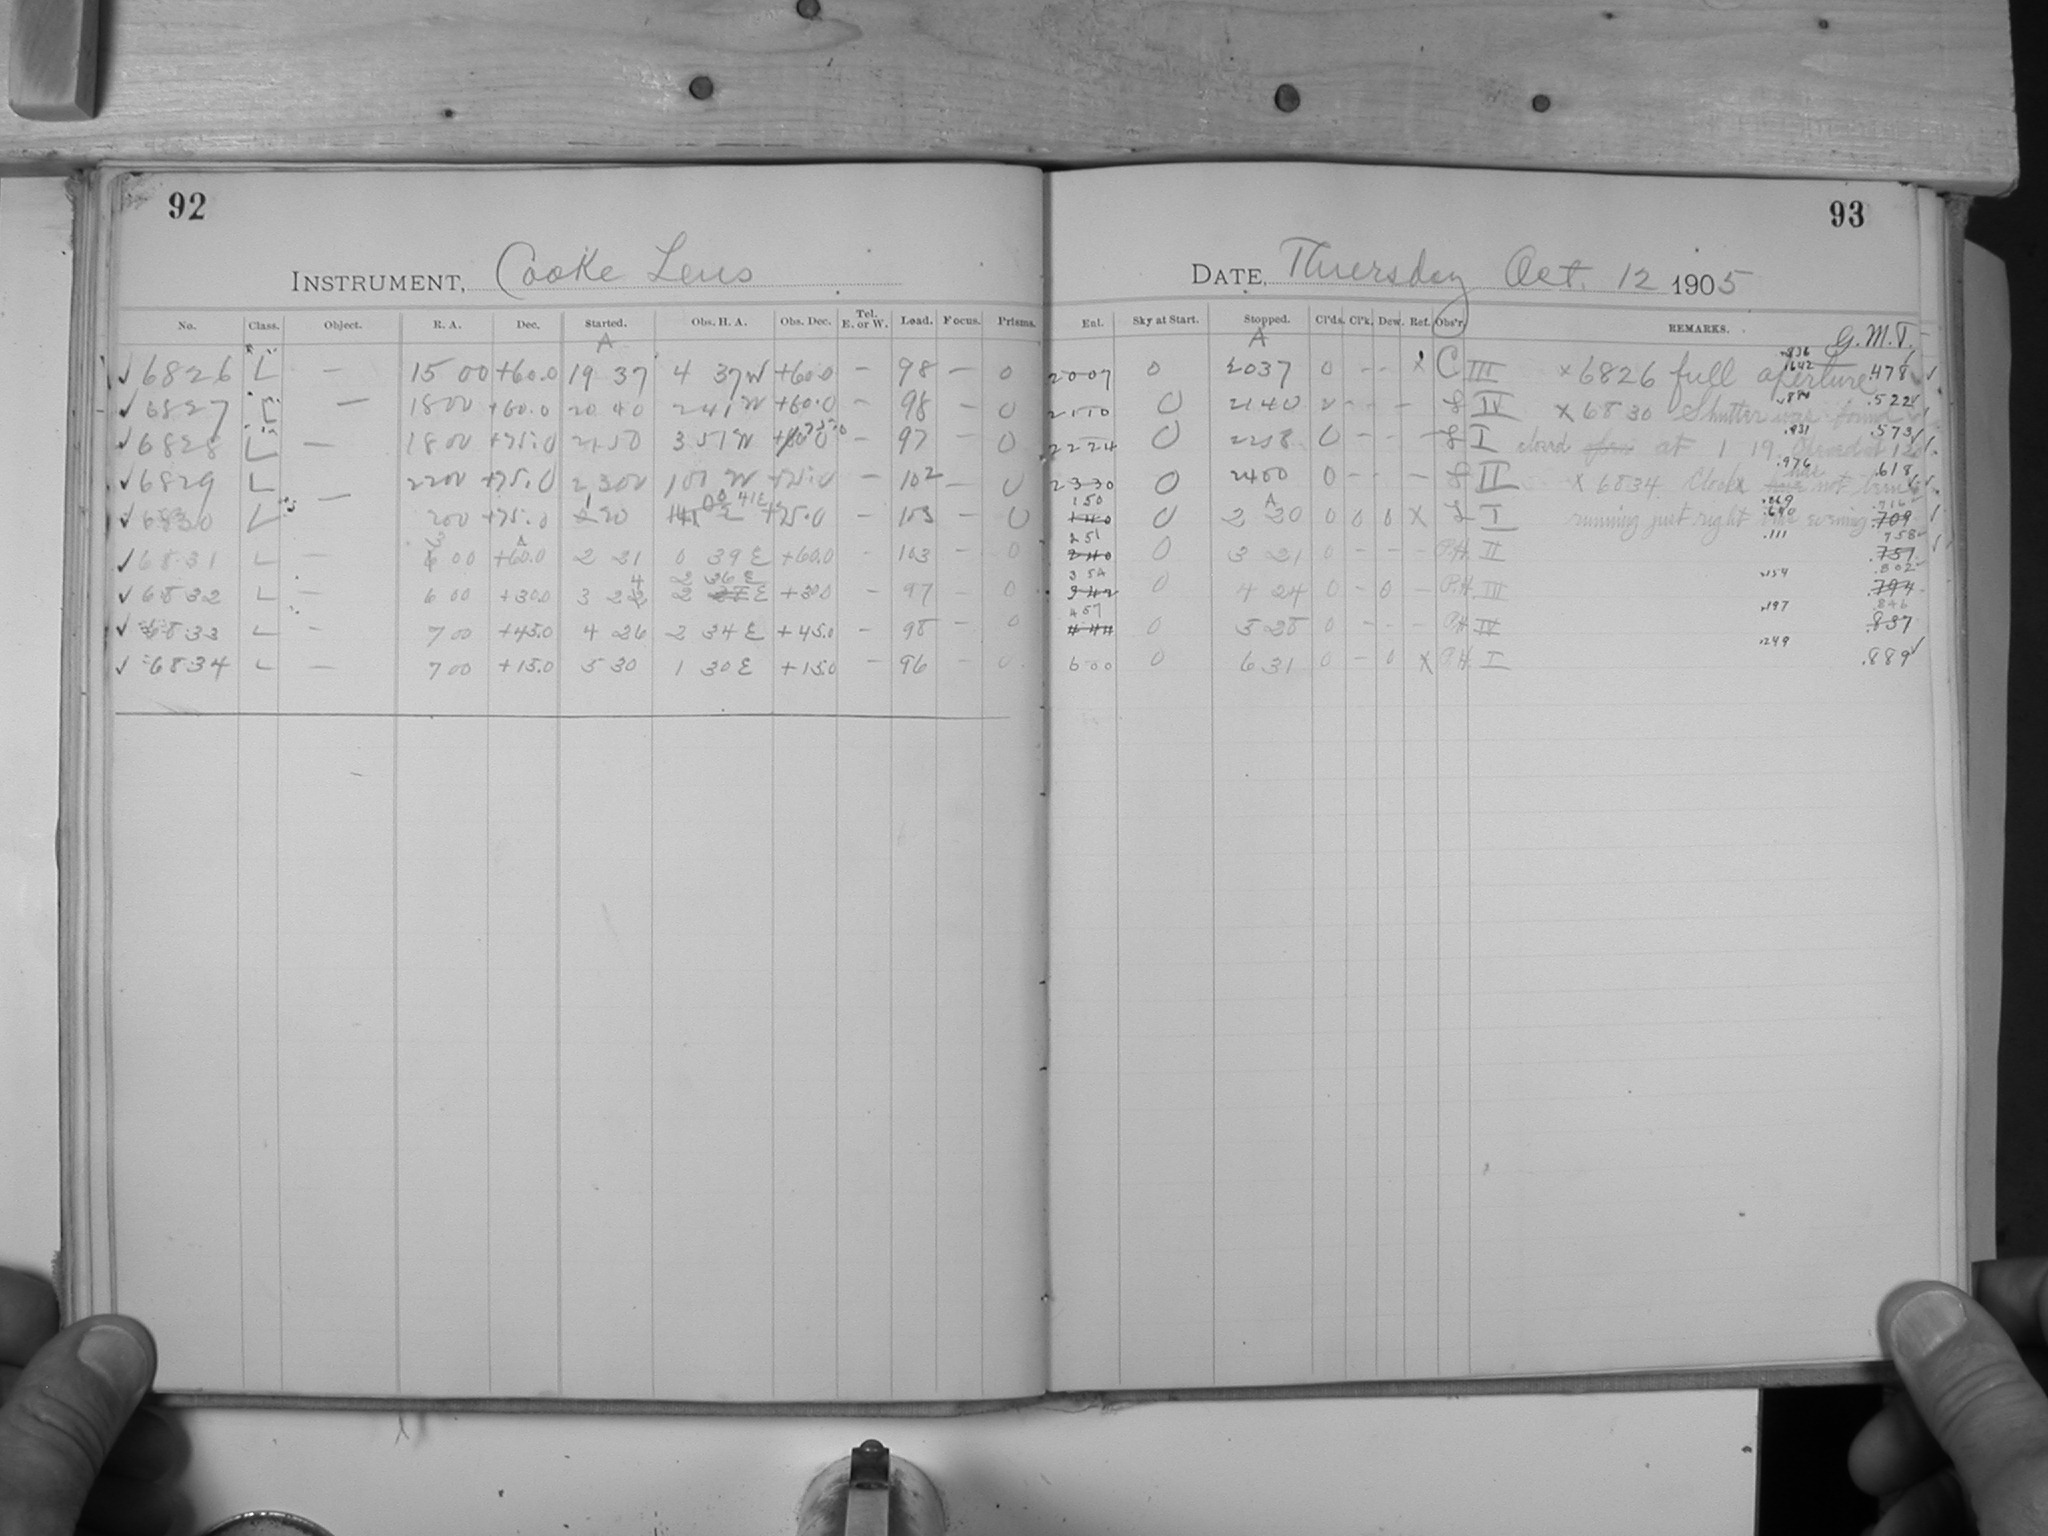 92
INSTRUMENT, Cooke Lens
No. Class. Object. R. A. Dec. Started. Obs. H. A. Obs. Dec. Tel. E. or W. Load. Focus. Prisms.
A
✓ 6826 L — 15 00 +60.0 19 37 4 37 W +60.0 — 98 — 0
✓ 6827 L — 18 00 +60.0 20 40 2 41 W +60.0 — 98 — 0
✓ 6828 L — 18 00 +75.0 21 50 3 51 W +75.0 — 97 — 0
✓ 6829 L 22 00 +75.0 23 00 1 01 W +75.0 — 102 — 0
✓ 6830 L — 2 00 +75.0 1 20 0 41 E +75.0 — 103 — 0
✓ 6831 L — 3 00 +60.0 2 21 0 39 E +60.0 — 103 — 0
✓ 6832 L — 6 00 +30.0 3 24 2 36 E +30.0 — 97 — 0
✓ 6833 L — 7 00 +45.0 4 26 2 34 E +45.0 — 98 — 0
✓ 6834 L — 7 00 +15.0 5 30 1 30 E +15.0 — 96 — 0
93
DATE, Thursday Oct. 12 1905
Enl. Sky at Start. Stopped. Cl'ds. Cl'k. Dew. Ref. Obs'r. REMARKS. G.M.T.
A
2007 0 2037 0 - - x C III x 6826 full aperture .478 ✓
2110 0 2140 0 - - - L IV x 6830 Shutter was found .522 ✓
2224 0 2258 0 - L I closed at 1 19 .831 .573 ✓
2330 0 2400 0 - - - L II x 6834 Clock not been .976 .618 ✓
150 0 2 20 0 0 0 x L I running just right evening .716 ✓
251 0 3 21 0 - - - P.H. II .111 .758 ✓
354 0 4 24 0 - 0 - P.H. III .154 .802
457 0 5 28 0 - - - P.H. IV .197 .846
600 0 6 31 0 - 0 x P.H. I .249 .889 ✓